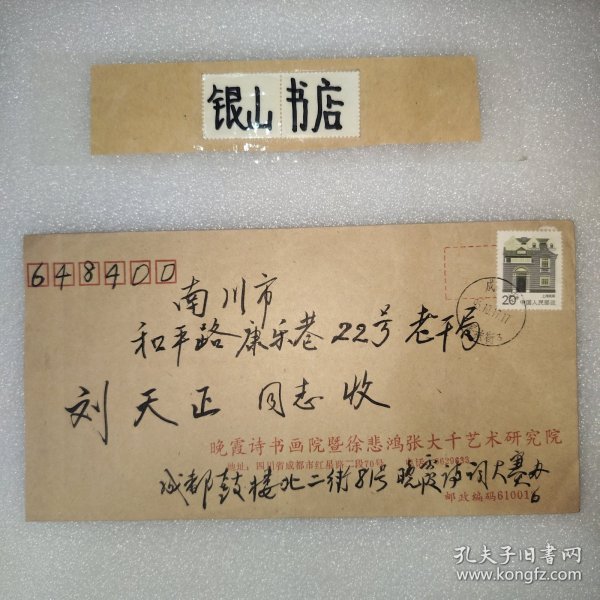 银山书店
648400
南川市
和平路康乐巷22号老干局
刘天正 同志收
20
上海民居
中国人民邮政
晚霞诗书画院暨徐悲鸿张大千艺术研究院
地址：四川省成都市红星路二段70号
成都鼓楼北二街81号 晚霞诗词大赛办
邮政编码61001
6
孔夫子旧书网
www.kongfz.com